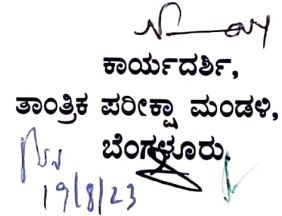 ಕಾರ್ಯದರ್ಶಿ,
ತಾಂತ್ರಿಕ ಪರೀಕ್ಷಾ ಮಂಡಳಿ,
ಬೆಂಗಳೂರು.
19/8/23